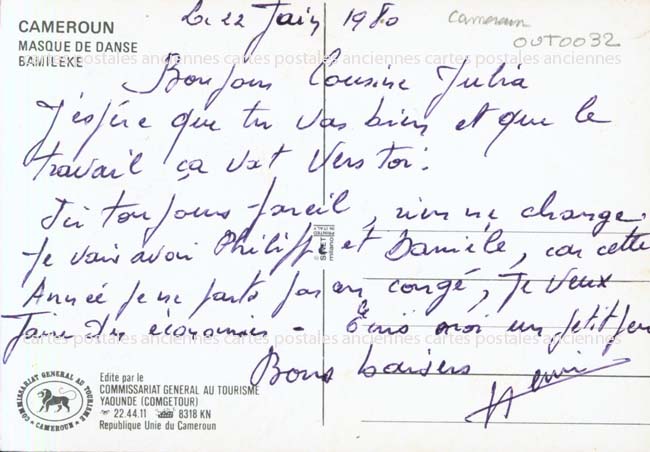 CAMEROUN
MASQUE DE DANSE
BAMILEKE
Le 22 Juin 1980
Cameroun
OUT0032
cartes postales anciennes cartes postales anciennes cartes postales anciennes
Bonjour Cousine Julia
J'espère que tu vas bien et que le
travail ça vat vers toi.
Ici toujours pareil, rien ne change.
Je vais avoir Philippe et Danièle, car cette
Année je ne parts pas en congé, je veux
faire des économies - Ecris moi un petit peu
Bons baisers
Henri
PRINTED
IN ITALY
milano
Edite par le
COMMISSARIAT GENERAL AU TOURISME
YAOUNDE (COMGETOUR)
22.44.11 8318 KN
Republique Unie du Cameroun
COMMISSARIAT GENERAL AU TOURISME
CAMEROUN